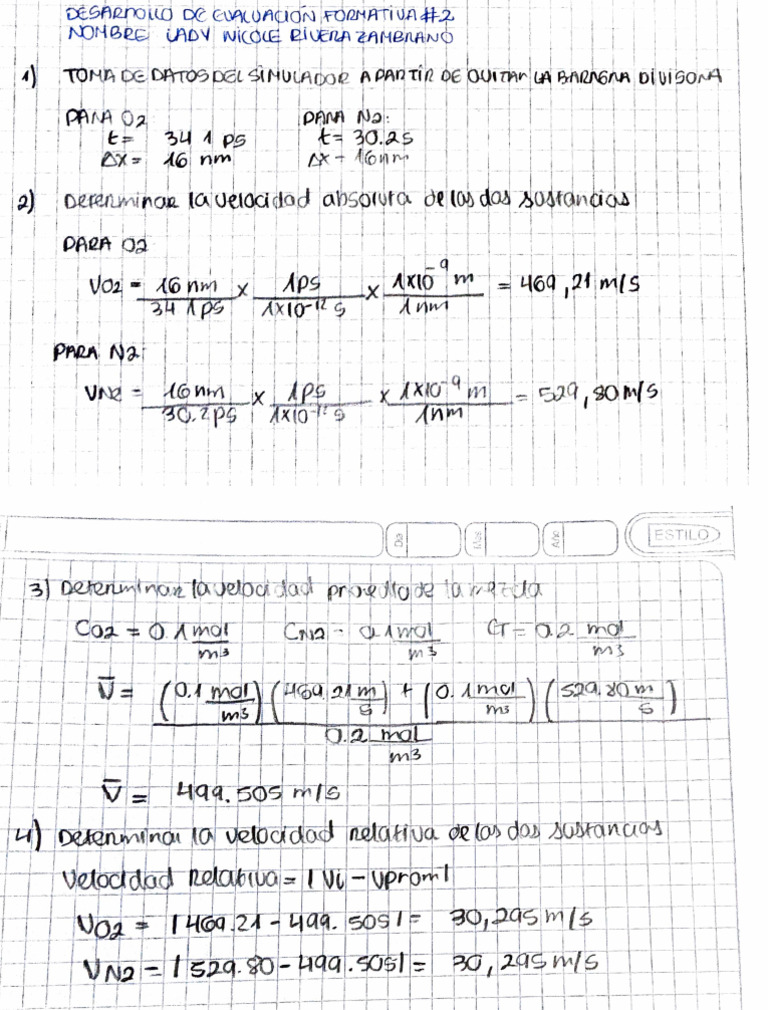 DESARROLLO DE EVALUACIÓN FORMATIVA #2
NOMBRE LADY NICOLE RIVERA ZAMBRANO
1) TOMA DE DATOS DEL SIMULADOR A PARTIR DE QUITAR LA BARRERA DIVISORA
PARA O2 PARA N2:
t= 34 1 ps t= 30.2s
Δx= 16 nm Δx - 16nm
2) Determinar la velocidad absoluta de las dos sustancias
PARA O2
VO2 = 16 nm / 34 1ps x 1ps / 1x10-12 s x 1x10-9 m / 1nm = 469,21 m/s
PARA N2:
VN2 = 16nm / 30.2ps x 1ps / 1x10-12 s x 1x10-9 m / 1nm = 529,80 m/s
Dia Mes Año ESTILO
3) Determinar la velocidad promedio de la mezcla
CO2 = 0.1 mol/m3 CN2 - 0.1 mol/m3 CT = 0.2 mol/m3
V̄ = (0.1 mol/m3) (469.21 m/s) + (0.1 mol/m3) (529.80 m/s) / 0.2 mol/m3
V̄ = 499.505 m/s
4) Determinar la velocidad relativa de las dos sustancias
Velocidad Relativa = |Vi - Vprom|
VO2 = |469.21 - 499.505| = 30,295 m/s
VN2 = |529.80 - 499.505| = 30,295 m/s